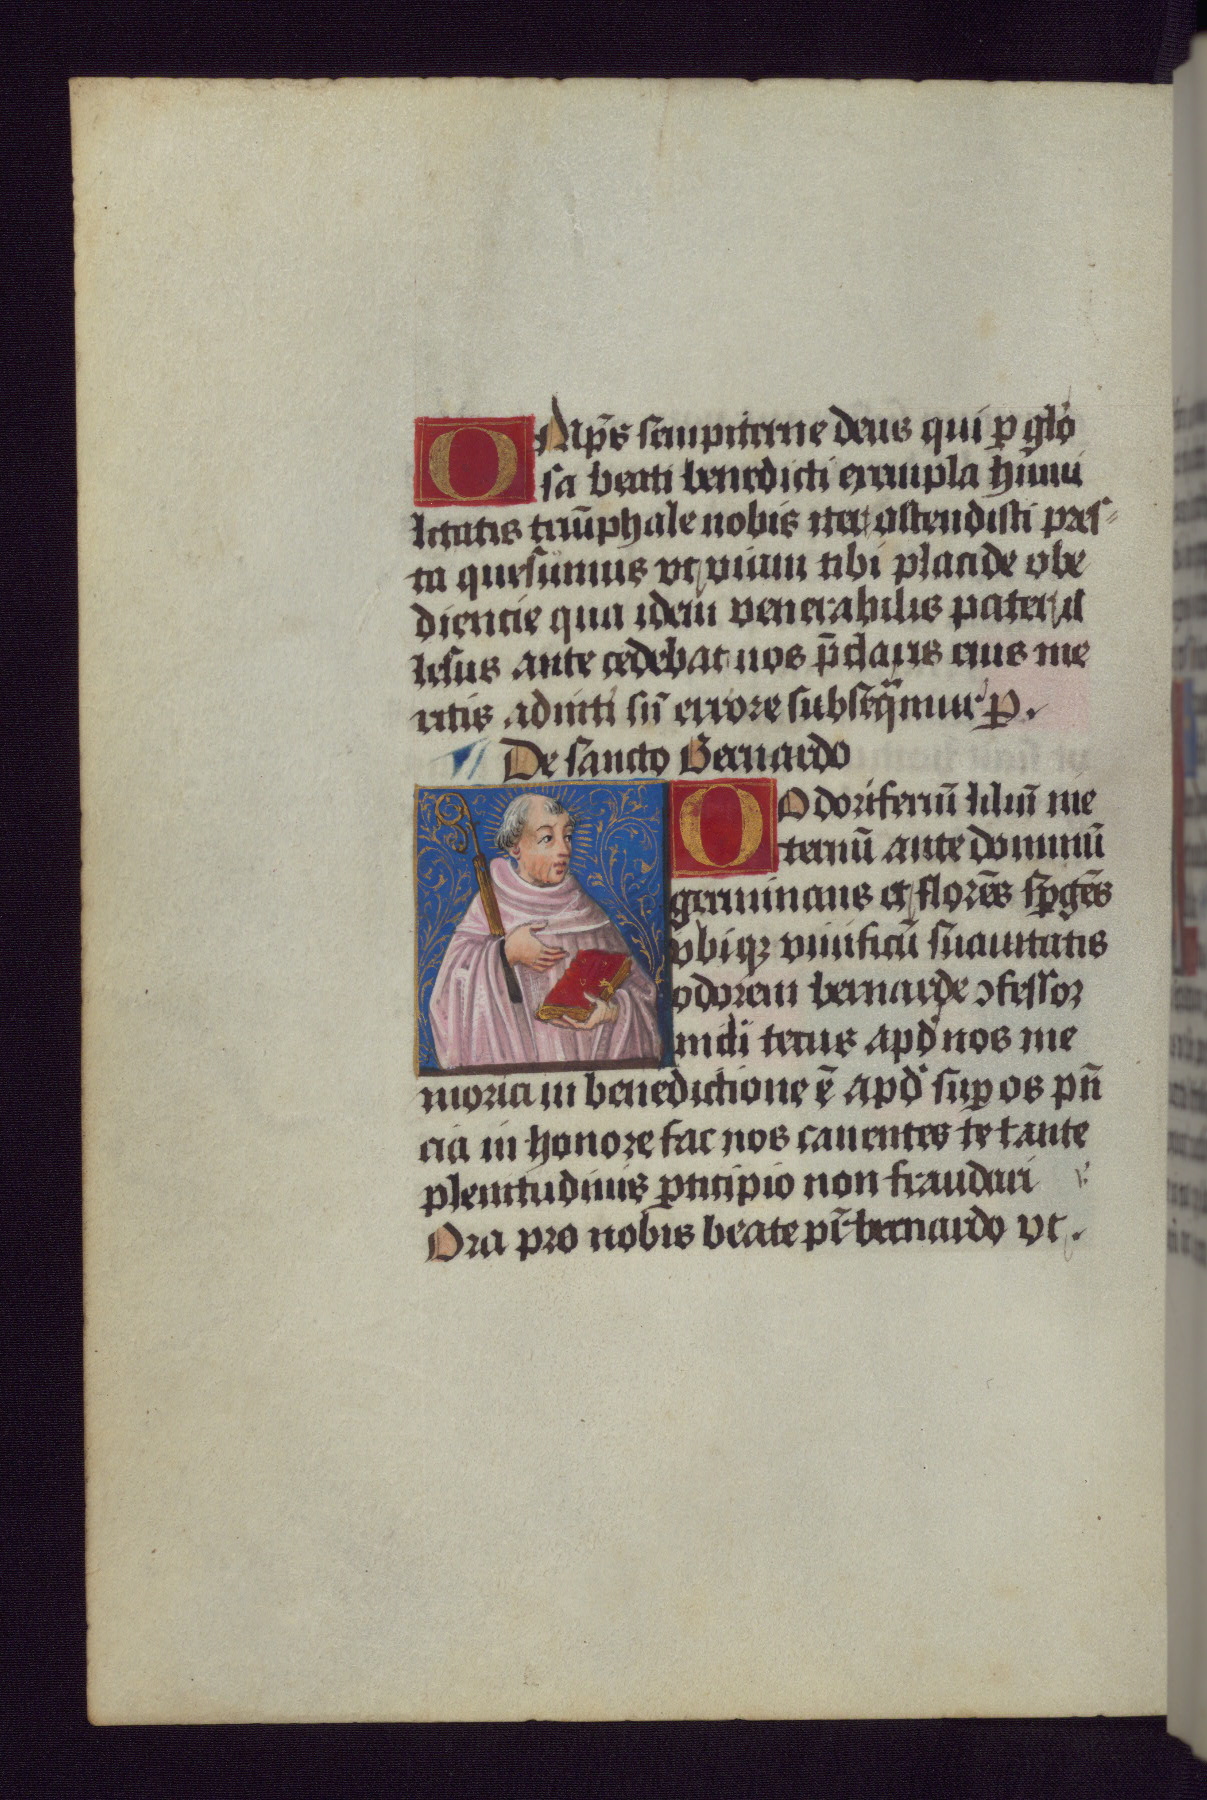 OMp̄s sempiterne deus qui p glo
sa beati benedicti exempla humi
litatis triūphale nobis iter ostendisti pres
ta quesumus vt viam tibi placide obe
diencie qua idem venerabilis pater il
lesus ante cedebat nos p̄claris eius me
ritis adiuti sñ errore subseq̄mur P.
De sancto Bernardo
O Odoriferū liliū me
ternū ante dominū
germinans et florēs spgēs
vbiqz viuificū suauitatis
odorem bernarde ɔfessor
incliterus apd nos me
moria in benedictione ē apd supos pñ
cia in honore fac nos cauentes te tante
plenitudinis pticipio non fraudari v̾
Ora pro nobis beate pr̄ bernardo vt.